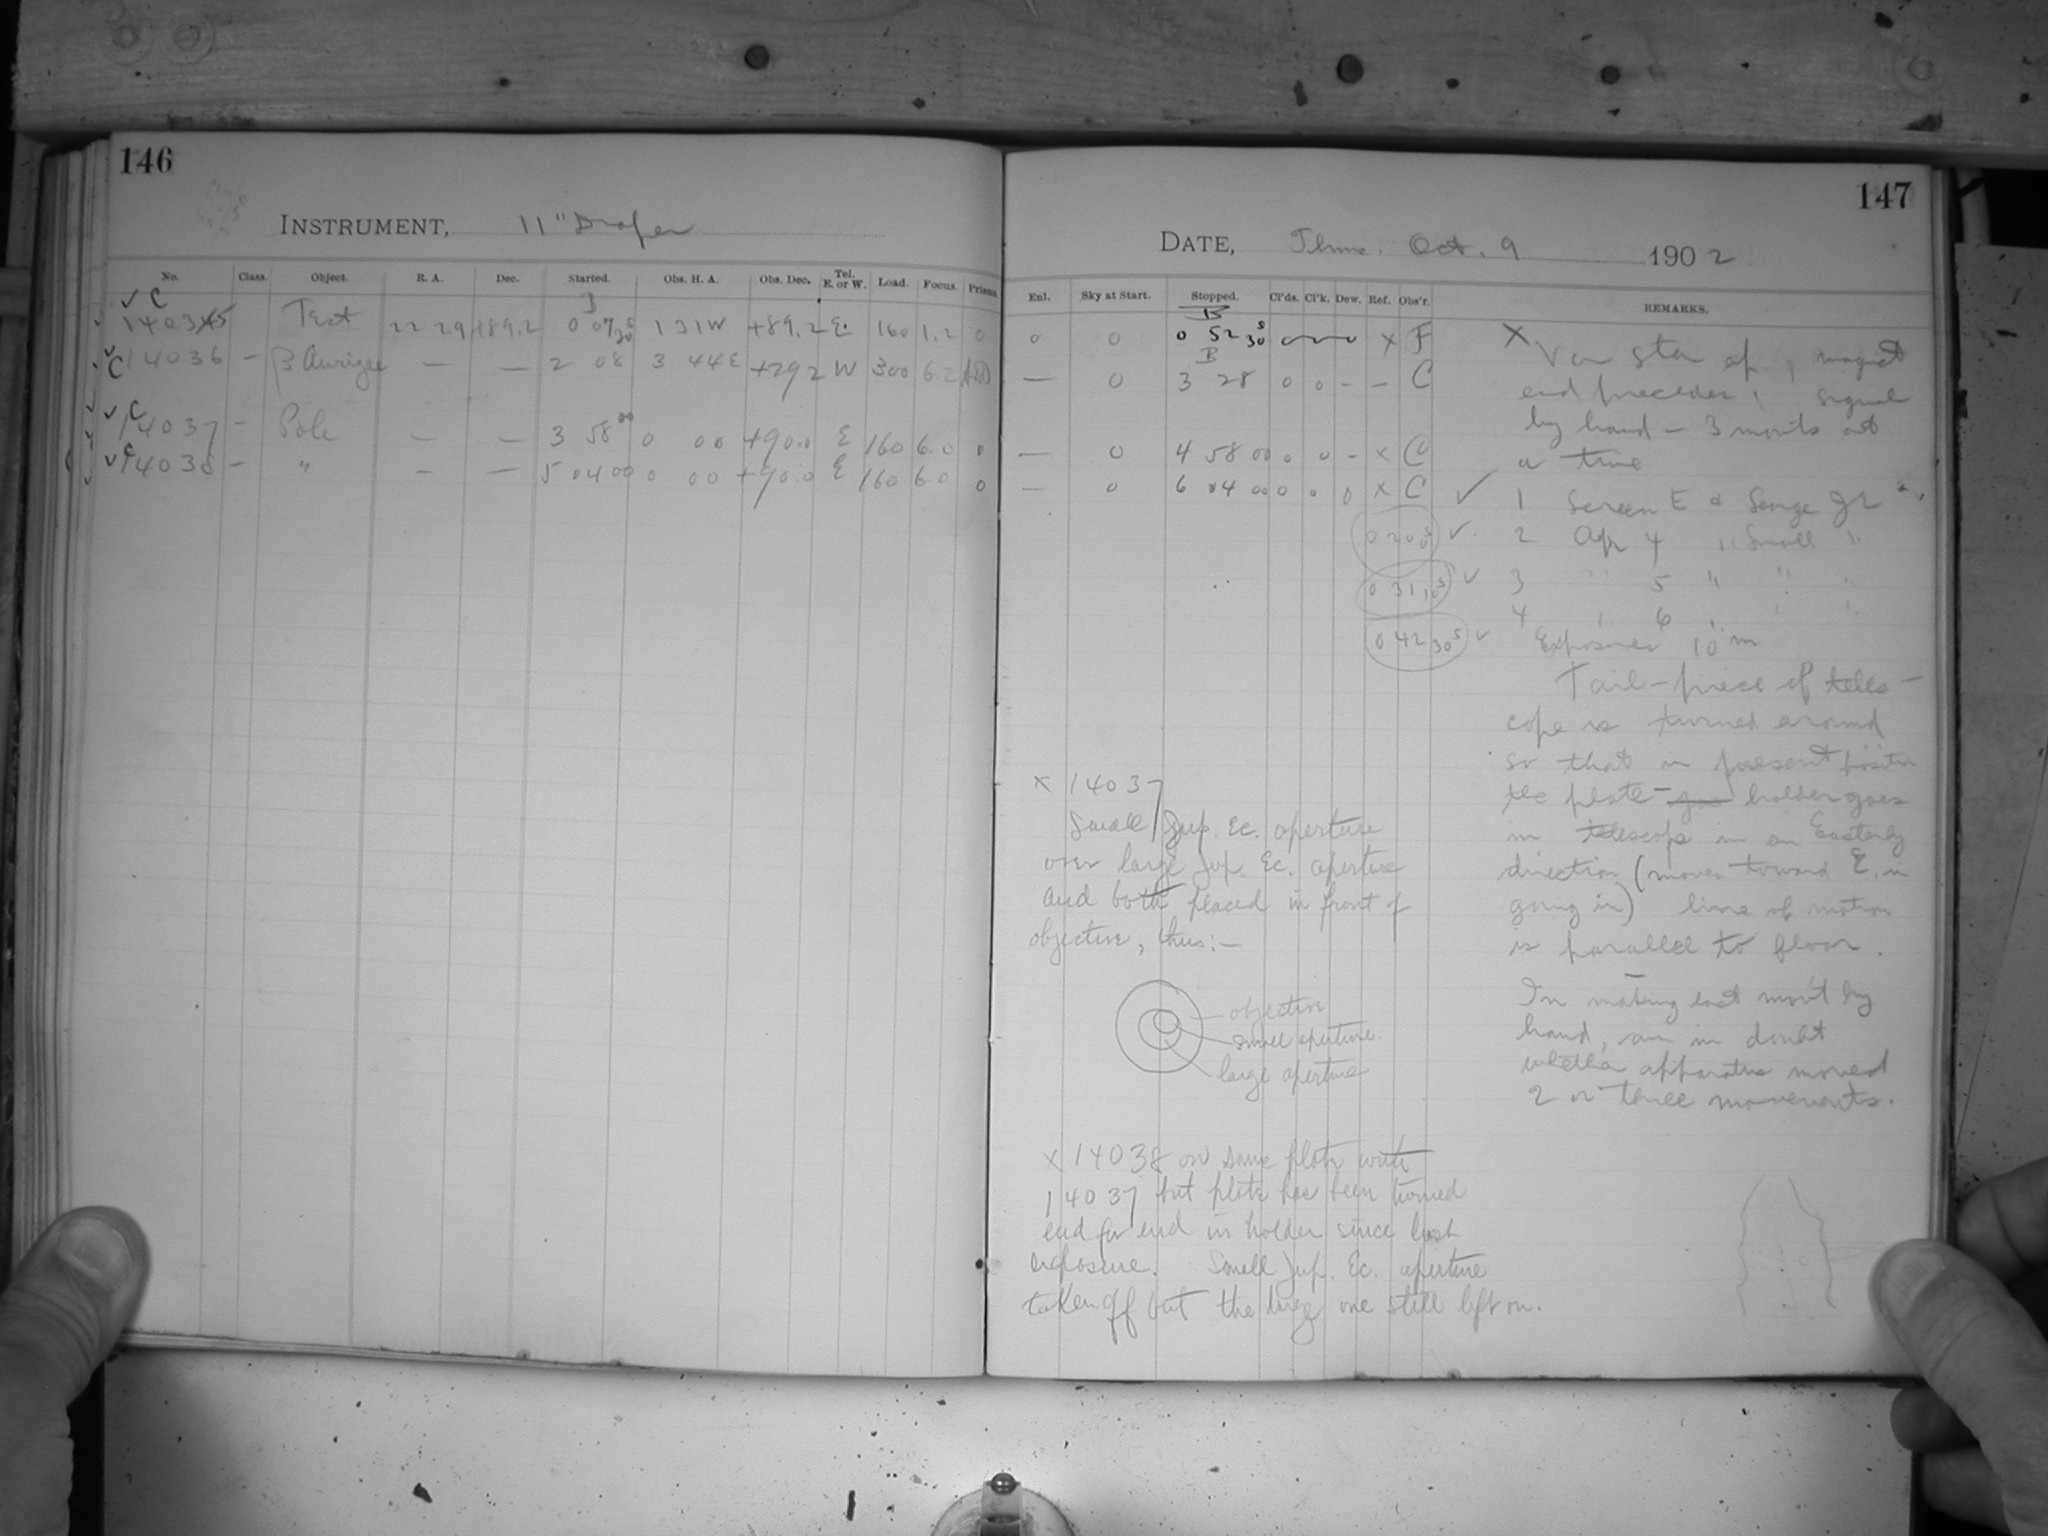 146
INSTRUMENT, 11" Draper
No. Class. Object. R. A. Dec. Started. Obs. H. A. Obs. Dec. Tel. E. or W. Load. Focus. Prisms
✓ C B
14035 Test 22 29 +89.2 0 07 30s 1 31 W +89.2 E. 160 1.2 0
✓ C 14036 — β Aurigae — — 2 08 3 44 E +29 2 W 300 6.2
✓ C 14037 — Pole — — 3 58 00 0 00 +90.0 E 160 6.0 0
✓ C 14038 — " — — 5 04 00 0 00 +90.0 E 160 6.0 0
147
DATE, Thur. Oct. 9 1902
Enl. Sky at Start. Stopped. Cl'ds. Cl'k. Dew. Ref. Obs'r. REMARKS.
B
0 0 0 52 30s 0 — 0 x F
B
— 0 3 28 0 0 - - C
— 0 4 58 00 0 0 - x C
— 0 6 04 00 0 0 0 x C
0 20 0s ✓
0 31 10s ✓
0 42 30s ✓
X Var star sp., magnet
end precedes, signal
by hand — 3 mov'ts at
a time
✓ 1 Screen E & large
2 Ap 4 " small "
3 " 5 " " "
4 " 6 " " "
Exposures 10 m
Tail-piece of teles-
cope is turned around
so that in present position
the plate- holder goes
in telescope in an Easterly
direction (moves toward E. in
going in) line of motion
is parallel to floor.
In making last mov't by
hand, am in doubt
whether apparatus moved
2 or three movements.
x 14037
Small Jup. Ec. aperture
over large Jup. Ec. aperture
and both placed in front of
objective, thus:—
objective
small aperture.
large aperture
x 14038 on same plate with
14037 but plate has been turned
end for end in holder since last
exposure. Small Jup. Ec. aperture
taken off but the large one still left on.